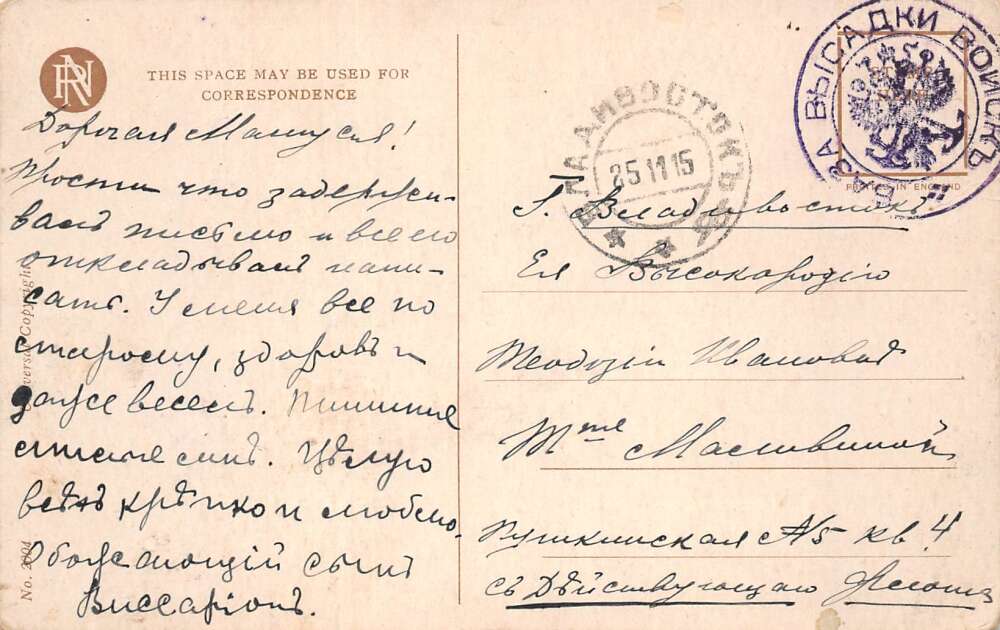 RPN
THIS SPACE MAY BE USED FOR
CORRESPONDENCE
Дорогая Мамуся!
Прости что задержи-
ваю письмо и все его
откладываю напи-
сать. У меня все по
старому, здоровъ и
даже веселъ. Пишите
Цѣлую
всѣхъ крѣпко и люблю.
Обожающій сынъ
Виссаріонъ.
No.
Universal Copyright
БАЗА ВЫСАДКИ ВОЙСКЪ
ВЛАДИВОСТОКЪ
25 11 15
PRINTED IN ENGLAND
Г. Владивостокъ
Ея Высокородію
Теодозіи Ивановнѣ
Mme Масловиной
Пушкинская №5 кв. 4
съ Дѣйствующаго Флота